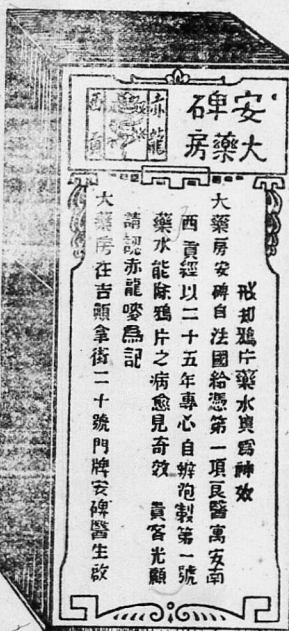 安碑
大藥房
赤龍
西貢
戒却鴉片藥水輿爲神效
大藥房安碑自法國給憑第一項良醫寓安南
西貢經以二十五年專心自辦泡製第一號
藥水能除鴉片之病愈見奇效 貴客光顧
請認赤龍嘜爲記
大藥房在吉顛拿街二十號門牌安碑醫生啟